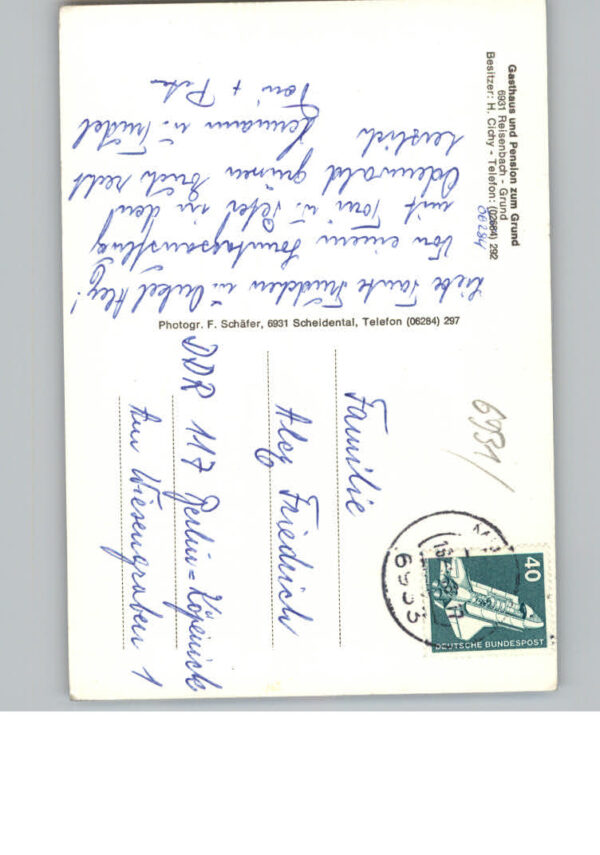 Gasthaus und Pension zum Grund
6931 Reisenbach - Grund
Besitzer: H. Cichy - Telefon: (02684) 292
06284
Liebe Tante Friedchen u. Onkel Alex!
Von einem Sonntagsausflug
mit Toni u. Peter in den
Odenwald grüssen Euch recht
herzlich
Hermann u. Trudel
Toni + Peter
Photogr. F. Schäfer, 6931 Scheidental, Telefon (06284) 297
6931/
40
DEUTSCHE BUNDESPOST
6933
Familie
Alex Friedrich
DDR 117 Berlin=Köpenick
Am Wiesengraben 1